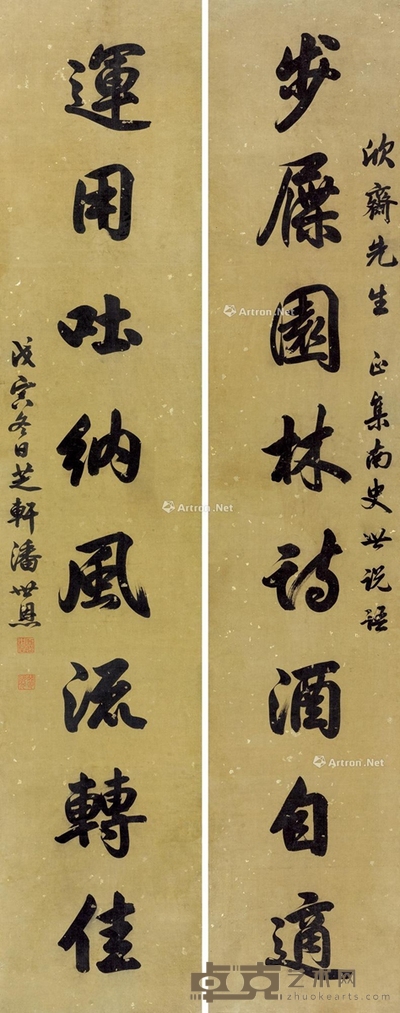 欣齋先生正集南史世说語
步屧園林詩酒自適
運用吐納風流轉佳
戊寅冬日芝軒潘世恩
Artron.Net
Artron.Net
Artron.Net
卓克艺术网
www.zhuokearts.com